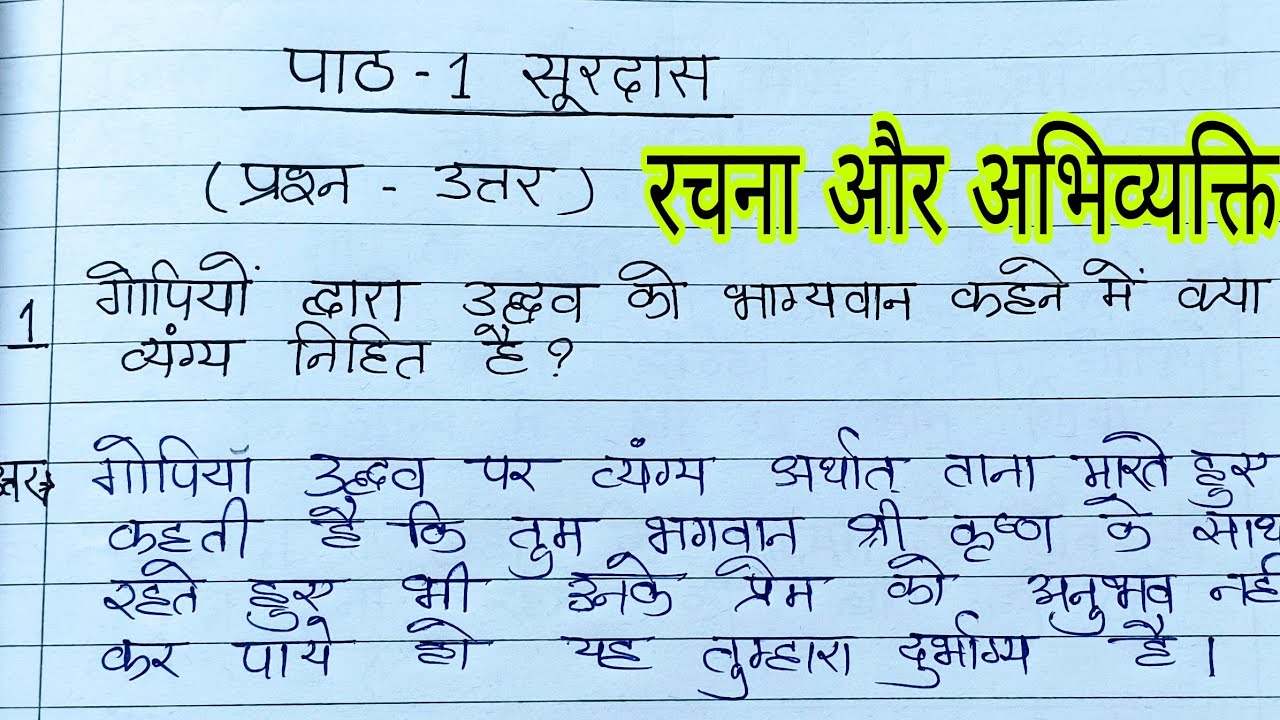 पाठ - 1 सूरदास
(प्रश्न - उत्तर)
रचना और अभिव्यक्ति
1 गोपियों द्वारा उद्धव को भाग्यवान कहने में क्या
व्यंग्य निहित है?
गोपियाँ उद्धव पर व्यंग्य अर्थात् ताना मारते हुए
कहती है कि तुम भगवान श्री कृष्ण के साथ
रहते हुए भी उनके प्रेम को अनुभव
कर पाये हो यह तुम्हारा दुर्भाग्य है।